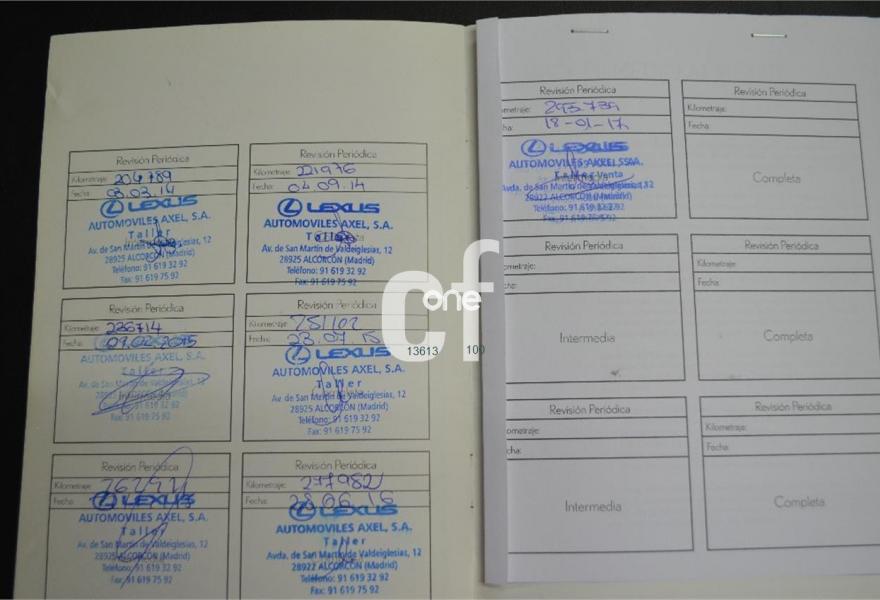 Revisión Periódica
Kilometraje: 204789
Fecha: 03.03.14
LEXUS
AUTOMOVILES AXEL, S.A.
Taller
Av. de San Martín de Valdeiglesias, 12
28925 ALCORCÓN (Madrid)
Teléfono: 91 619 32 92
Fax: 91 619 75 92
Revisión Periódica
Kilometraje: 221976
Fecha: 04.09.14
LEXUS
AUTOMOVILES AXEL, S.A.
Taller
Av. de San Martín de Valdeiglesias, 12
28925 ALCORCÓN (Madrid)
Teléfono: 91 619 32 92
Fax: 91 619 75 92
Revisión Periódica
Kilometraje: 236714
Fecha: 09.02.2015
AUTOMOVILES AXEL, S.A.
Taller
Av. de San Martín de Valdeiglesias, 12
28925 ALCORCÓN (Madrid)
Teléfono: 91 619 32 92
Fax: 91 619 75 92
Revisión Periódica
Kilometraje: 251102
Fecha: 23.07.15
LEXUS
AUTOMOVILES AXEL, S.A.
Taller
Av. de San Martín de Valdeiglesias, 12
28925 ALCORCÓN (Madrid)
Teléfono: 91 619 32 92
Fax: 91 619 75 92
Revisión Periódica
Kilometraje:
Fecha:
LEXUS
AUTOMOVILES AXEL, S.A.
Taller
Av. de San Martín de Valdeiglesias, 12
28925 ALCORCÓN (Madrid)
Teléfono: 91 619 32 92
Fax: 91 619 75 92
Revisión Periódica
Kilometraje: 277982
Fecha: 28.06.16
LEXUS
AUTOMOVILES AXEL, S.A.
Taller
Avda. de San Martín de Valdeiglesias, 12
28922 ALCORCÓN (Madrid)
Teléfono: 91 619 32 92
Fax: 91 619 75 92
cf
one
13613 100
Revisión Periódica
ometraje: 295.739
ha: 18-01-17
LEXUS
AUTOMOVILES AXEL, S.A.
Taller-Venta
Avda. de San Martín de Valdeiglesias, 12
28922 ALCORCÓN (Madrid)
Teléfono: 91 619 32 92
Fax: 91 619 75 92
Revisión Periódica
Kilometraje:
Fecha:
Completa
Revisión Periódica
ometraje:
cha:
Intermedia
Revisión Periódica
Kilometraje:
Fecha:
Completa
Revisión Periódica
ometraje:
cha:
Intermedia
Revisión Periódica
Kilometraje:
Fecha:
Completa